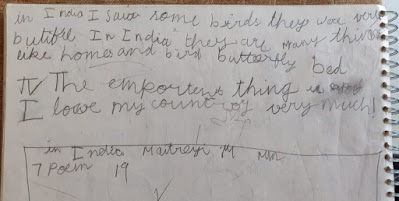 in India I saw some birds they wae very
butifle In India they are many things
like homes and bird butterfly bed
TV The emportent thing is
I love my country very much!
in India Maitreyi M
7 Poem 19